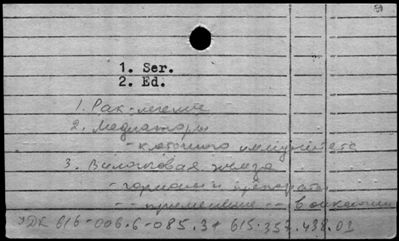 1. Ser.
2. Ed.
1. Рак - лечение
2. Медиаторы
- клеточного иммунитета
3. Вилочковая железа
- гормоны и препараты
- - применение - - в онкологии
УДК 616-006.6-085.3+615.357.438.01